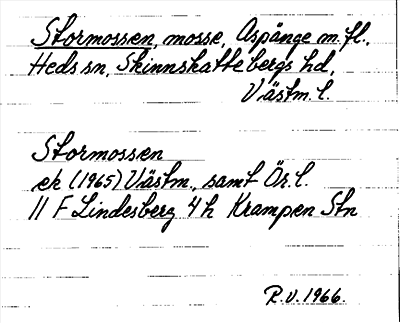 Stormossen, mosse, Aspänge m.fl.,
Heds sn, Skinnskattebergs hd,
Västm. l.
Stormossen
ek (1965) Västm., samt Ör. l.
11 F Lindesberg 4 h Krampen Stn
R.V. 1966.